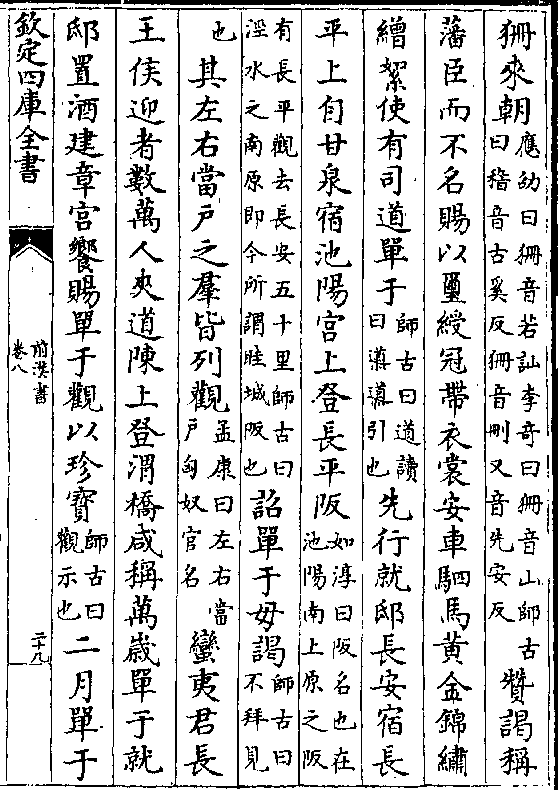 狦來朝應劭曰狦音若訕李奇曰狦音山師古曰稽音古奚反狦音刪又音先安反贊謁稱
藩臣而不名賜以璽綬冠帶衣裳安車駟馬黃金錦繡
繒絮使有司道單于師古曰道讀曰導導引也先行就邸長安宿長
平上自甘泉宿池陽宮上登長平阪如淳曰阪名也在池陽南上原之阪
有長平觀去長安五十里師古曰涇水之南原即今所謂眭城阪也詔單于毋謁師古曰不拜見
也其左右當戶之羣皆列觀孟康曰左右當戶匈奴官名蠻夷君長
王侯迎者數萬人夾道陳上登渭橋咸稱萬歲單于就
邸置酒建章宮饗賜單于觀以珍寶師古曰觀示也二月單于
欽定四庫全書
前漢書
卷八